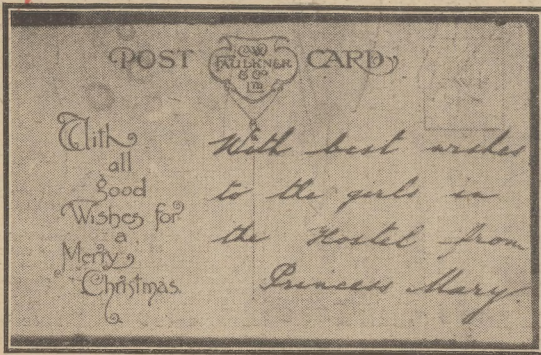 POST CARD
C.W.
FAULKNER
& Co
Ltd.
With
all
good
Wishes for
a
Merry
Christmas.
With best wishes
to the girls in
the Hostel from
Princess Mary.